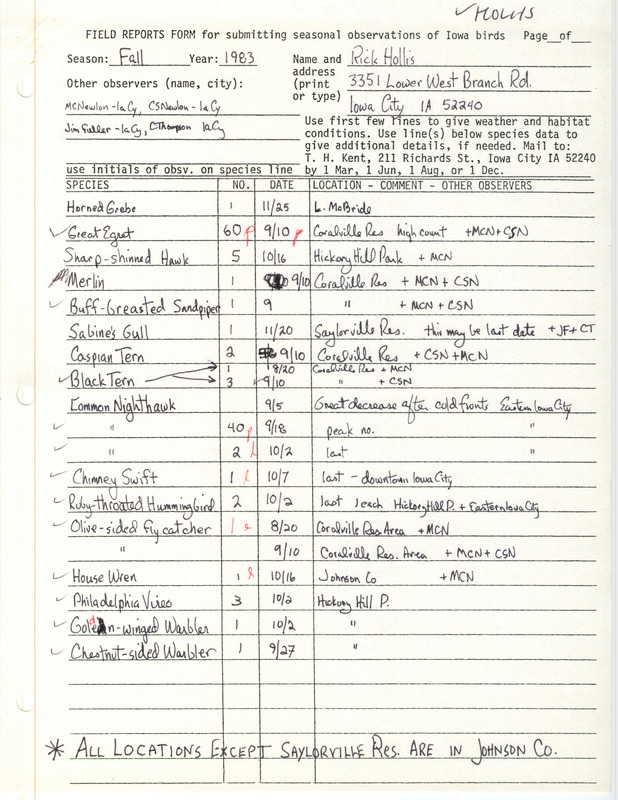 ✓HOLLIS
FIELD REPORTS FORM for submitting seasonal observations of Iowa birds Page__of___
Season: Fall Year: 1983 Name and Rick Hollis
address 3351 Lower West Branch Rd.
Other observers (name, city): (print
or type) Iowa City IA 52240
MCNewlon-IaCy, CSNewlon-IaCy
Jim Fuller-IaCy, CThompson IaCy
Use first few lines to give weather and habitat
conditions. Use line(s) below species data to
give additional details, if needed. Mail to:
T. H. Kent, 211 Richards St., Iowa City IA 52240
use initials of obsv. on species line by 1 Mar, 1 Jun, 1 Aug, or 1 Dec.
SPECIES NO. DATE LOCATION - COMMENT - OTHER OBSERVERS
Horned Grebe 1 11/25 L. McBride
✓ Great Egret 60 p 9/10 p Coralville Res high count +MCN+CSN
Sharp-shinned Hawk 5 10/16 Hickory Hill Park + MCN
Merlin 1 9/10 Coralville Res + MCN + CSN
✓ Buff-breasted Sandpiper 1 9 " + MCN + CSN
Sabine's Gull 1 11/20 Saylorville Res. this may be last date +JF+CT
Caspian Tern 2 9/10 Coralville Res + CSN+MCN
1 8/20 Coralville Res + MCN
✓ Black Tern 3 9/10 " + CSN
Common Nighthawk 9/5 Great decrease after cold fronts Eastern Iowa City
✓ " 40 p 9/18 peak no. "
✓ " 2 l 10/2 last "
✓ Chimney Swift 1 l 10/7 last - downtown Iowa City
✓ Ruby-throated Hummingbird 2 10/2 last 1 each Hickory Hill P. + Eastern Iowa City
✓ Olive-sided flycatcher 1 e 8/20 Coralville Res Area +MCN
" 9/10 Coralville Res. Area + MCN + CSN
✓ House Wren 1 l 10/16 Johnson Co +MCN
✓ Philadelphia Vireo 3 10/2 Hickory Hill P.
✓ Golden-winged Warbler 1 10/2 "
✓ Chestnut-sided Warbler 1 9/27 "
* ALL LOCATIONS EXCEPT SAYLORVILLE RES. ARE IN JOHNSON CO.